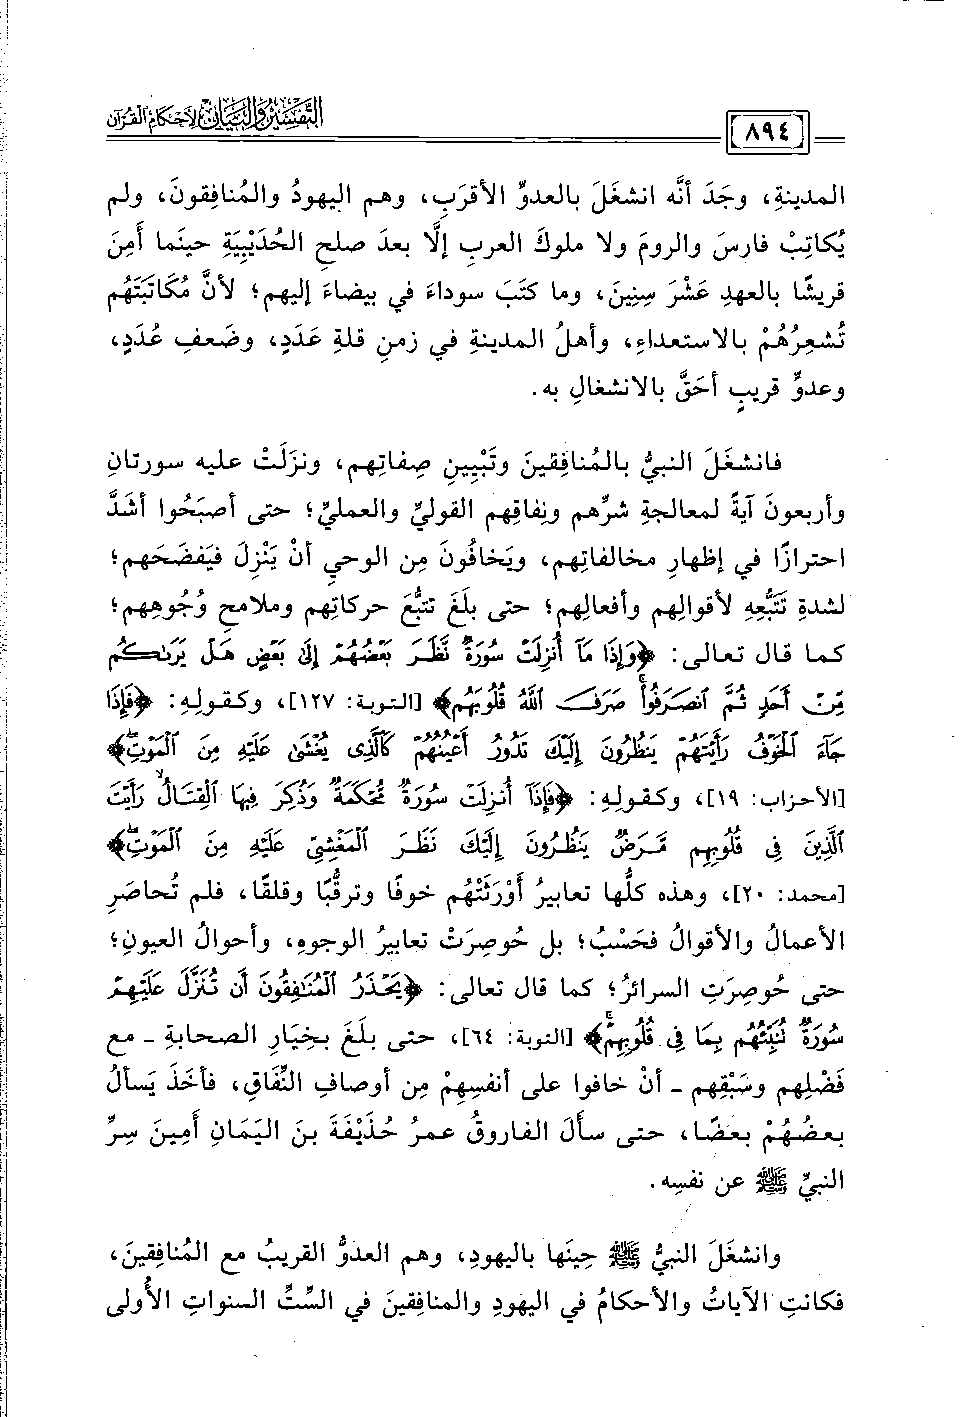 التفسير والبيان لأحكام القرآن
٨٩٤
المدينةِ، وجَدَ أنَّه انشغَلَ بالعدوِّ الأقرَبِ، وهم اليهودُ والمُنافِقونَ، ولم
يُكاتِبْ فارسَ والرومَ ولا ملوكَ العربِ إلَّا بعدَ صلحِ الحُدَيْبِيَةِ حينَما أَمِنَ
قريشًا بالعهدِ عَشْرَ سِنِينَ، وما كتَبَ سوداءَ في بيضاءَ إليهم؛ لأنَّ مُكاتَبَتَهُم
تُشعِرُهُمْ بالاستعداءِ، وأهلُ المدينةِ في زمنِ قلةِ عَدَدٍ، وضَعفِ عُدَدٍ،
وعدوٍّ قريبٍ أحَقَّ بالانشغالِ به.
فانشغَلَ النبيُّ بالمُنافِقينَ وتَبْيِينِ صِفاتِهم، ونزَلَتْ عليه سورتانِ
وأربعونَ آيةً لمعالجةِ شرِّهم ونِفاقِهم القوليِّ والعمليِّ؛ حتى أصبَحُوا أشَدَّ
احترازًا في إظهارِ مخالفاتِهم، ويَخافُونَ مِن الوحيِ أنْ يَنْزِلَ فيَفضَحَهم؛
لشدةِ تَتَبُّعِهِ لأقوالِهم وأفعالِهم؛ حتى بلَغَ تتبُّعَ حركاتِهم وملامحِ وُجُوهِهم؛
كما قال تعالى: ﴿وَإِذَا مَآ أُنزِلَتْ سُورَةٌ نَّظَرَ بَعْضُهُمْ إِلَىٰ بَعْضٍ هَلْ يَرَىٰكُم
مِّنْ أَحَدٍ ثُمَّ ٱنصَرَفُوا۟ ۚ صَرَفَ ٱللَّهُ قُلُوبَهُم﴾ [التوبة: ١٢٧]، وكقولِهِ: ﴿فَإِذَا
جَآءَ ٱلْخَوْفُ رَأَيْتَهُمْ يَنظُرُونَ إِلَيْكَ تَدُورُ أَعْيُنُهُمْ كَٱلَّذِى يُغْشَىٰ عَلَيْهِ مِنَ ٱلْمَوْتِ ۖ﴾
[الأحزاب: ١٩]، وكقولِهِ: ﴿فَإِذَآ أُنزِلَتْ سُورَةٌ مُّحْكَمَةٌ وَذُكِرَ فِيهَا ٱلْقِتَالُ ۙ رَأَيْتَ
ٱلَّذِينَ فِى قُلُوبِهِم مَّرَضٌ يَنظُرُونَ إِلَيْكَ نَظَرَ ٱلْمَغْشِىِّ عَلَيْهِ مِنَ ٱلْمَوْتِ ۖ﴾
[محمد: ٢٠]، وهذه كلُّها تعابيرُ أوْرَثَتْهُم خوفًا وترقُّبًا وقلقًا، فلم تُحاصَرِ
الأعمالُ والأقوالُ فحَسْبُ؛ بل حُوصِرَتْ تعابيرُ الوجوهِ، وأحوالُ العيونِ؛
حتى حُوصِرَتِ السرائرُ؛ كما قال تعالى: ﴿يَحْذَرُ ٱلْمُنَـٰفِقُونَ أَن تُنَزَّلَ عَلَيْهِمْ
سُورَةٌ تُنَبِّئُهُم بِمَا فِى قُلُوبِهِمْ ۚ﴾ [التوبة: ٦٤]، حتى بلَغَ بخِيَارِ الصحابةِ - مع
فَضْلِهم وسَبْقِهم - أنْ خافوا على أنفسِهِمْ مِن أوصافِ النِّفَاقِ، فأخَذَ يَسألُ
بعضُهُمْ بعضًا، حتى سألَ الفاروقُ عمرُ حُذَيْفَةَ بنَ اليَمَانِ أَمِينَ سِرِّ
النبيِّ ﷺ عن نفسِه.
وانشغَلَ النبيُّ ﷺ حِينَها باليهودِ، وهم العدوُّ القريبُ مع المُنافِقينَ،
فكانتِ الآياتُ والأحكامُ في اليهودِ والمنافقينَ في السِّتِّ السنواتِ الأُولى